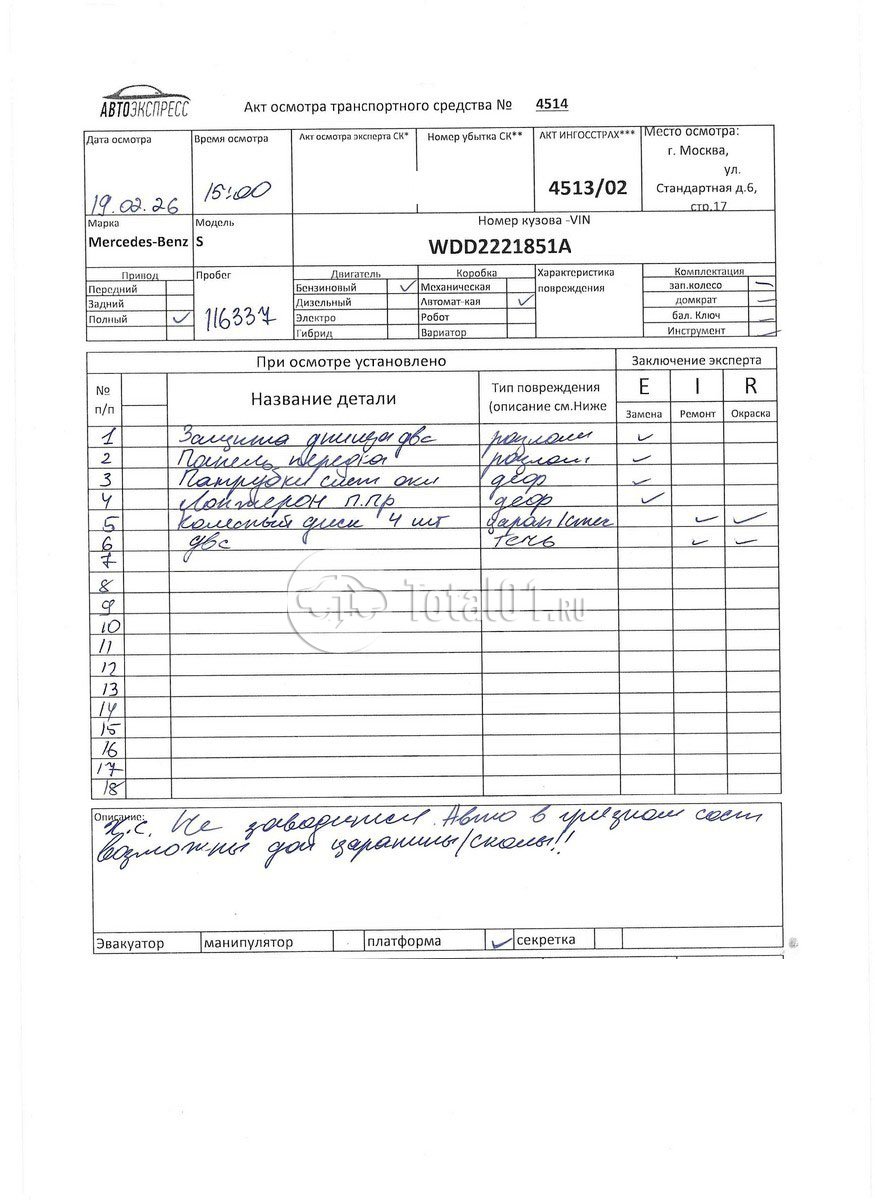 АВТОЭКСПРЕСС
Акт осмотра транспортного средства № 4514
Дата осмотра
Время осмотра
Акт осмотра эксперта СК*
Номер убытка СК**
АКТ ИНГОССТРАХ***
Место осмотра:
г. Москва,
ул.
Стандартная д.6,
стр.17
19.02.26
15:00
4513/02
Марка
Модель
Номер кузова -VIN
Mercedes-Benz
S
WDD2221851A
Привод
Пробег
Двигатель
Коробка
Характеристика
повреждения
Комплектация
Передний
Бензиновый
Механическая
зап.колесо
Задний
Дизельный
Автомат-кая
домкрат
Полный
116337
Электро
Робот
бал. Ключ
Гибрид
Вариатор
Инструмент
При осмотре установлено
Заключение эксперта
№
п/п
Название детали
Тип повреждения
(описание см.Ниже
E I R
Замена Ремонт Окраска
1 Защита днища двс
2 Панель передка
3 Патрубки сист деф
4 Лонжерон п.пр деф
5 Колесный диск 4 шт царап/
6 двс течь
7
8
9
10
11
12
13
14
15
16
17
18
Total01.RU
Описание:
Не заводится. Авто в грязном сост
возможны доп царапины/сколы!!
Эвакуатор манипулятор платформа секретка